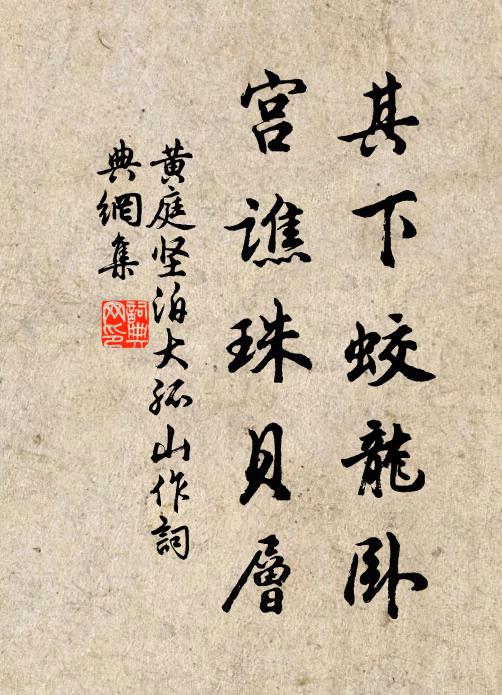 其下蛟龍卧
宫譙珠貝層
黄庭坚泊大孤山作詞
典網集
詞典網印